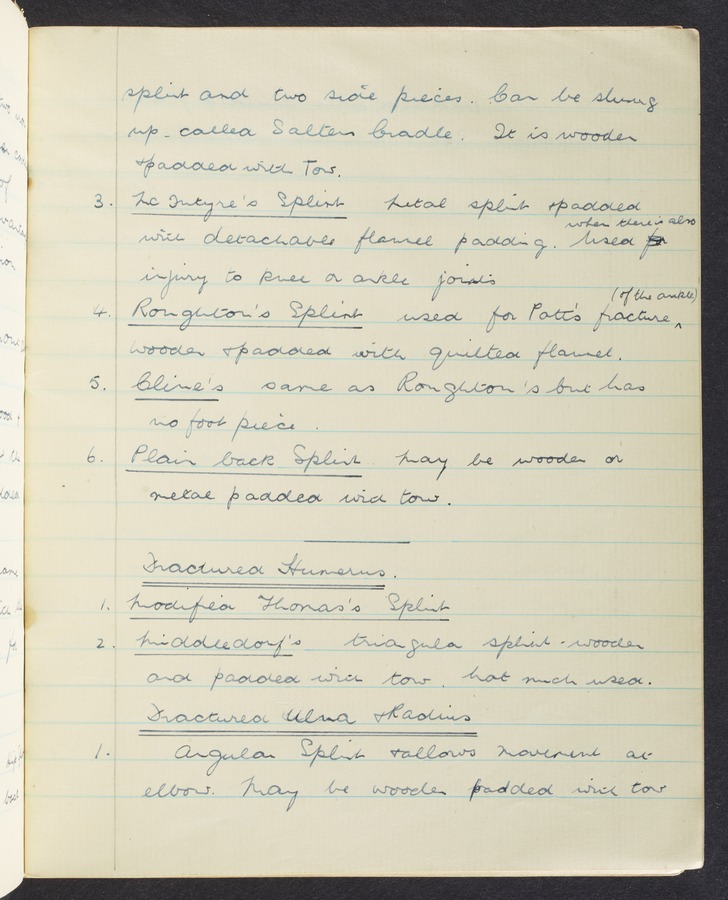 splint and two side pieces. Can be slung
up - called Salters Cradle. It is wooden
& padded with Tow.
3. Mc Intyre's Splint Metal splint & padded
when there is also
with detachable flannel padding. Used for
injury to knee or ankle joints
(of the ankle)
4. Roughton's Splint used for Pott's fracture ^
wooden & padded with quilted flannel.
5. Cline's same as Roughton's but has
no foot piece.
6. Plain back Splint May be wooden or
metal padded with tow.
Fractured Humerus.
1. Modified Thomas's Splint
2. Middledorf's triangula splint - wooden
and padded with tow. Not much used.
Fractured Ulna & Radius
1. Angular Splint & allows movement at
elbow. May be wooden padded with tow